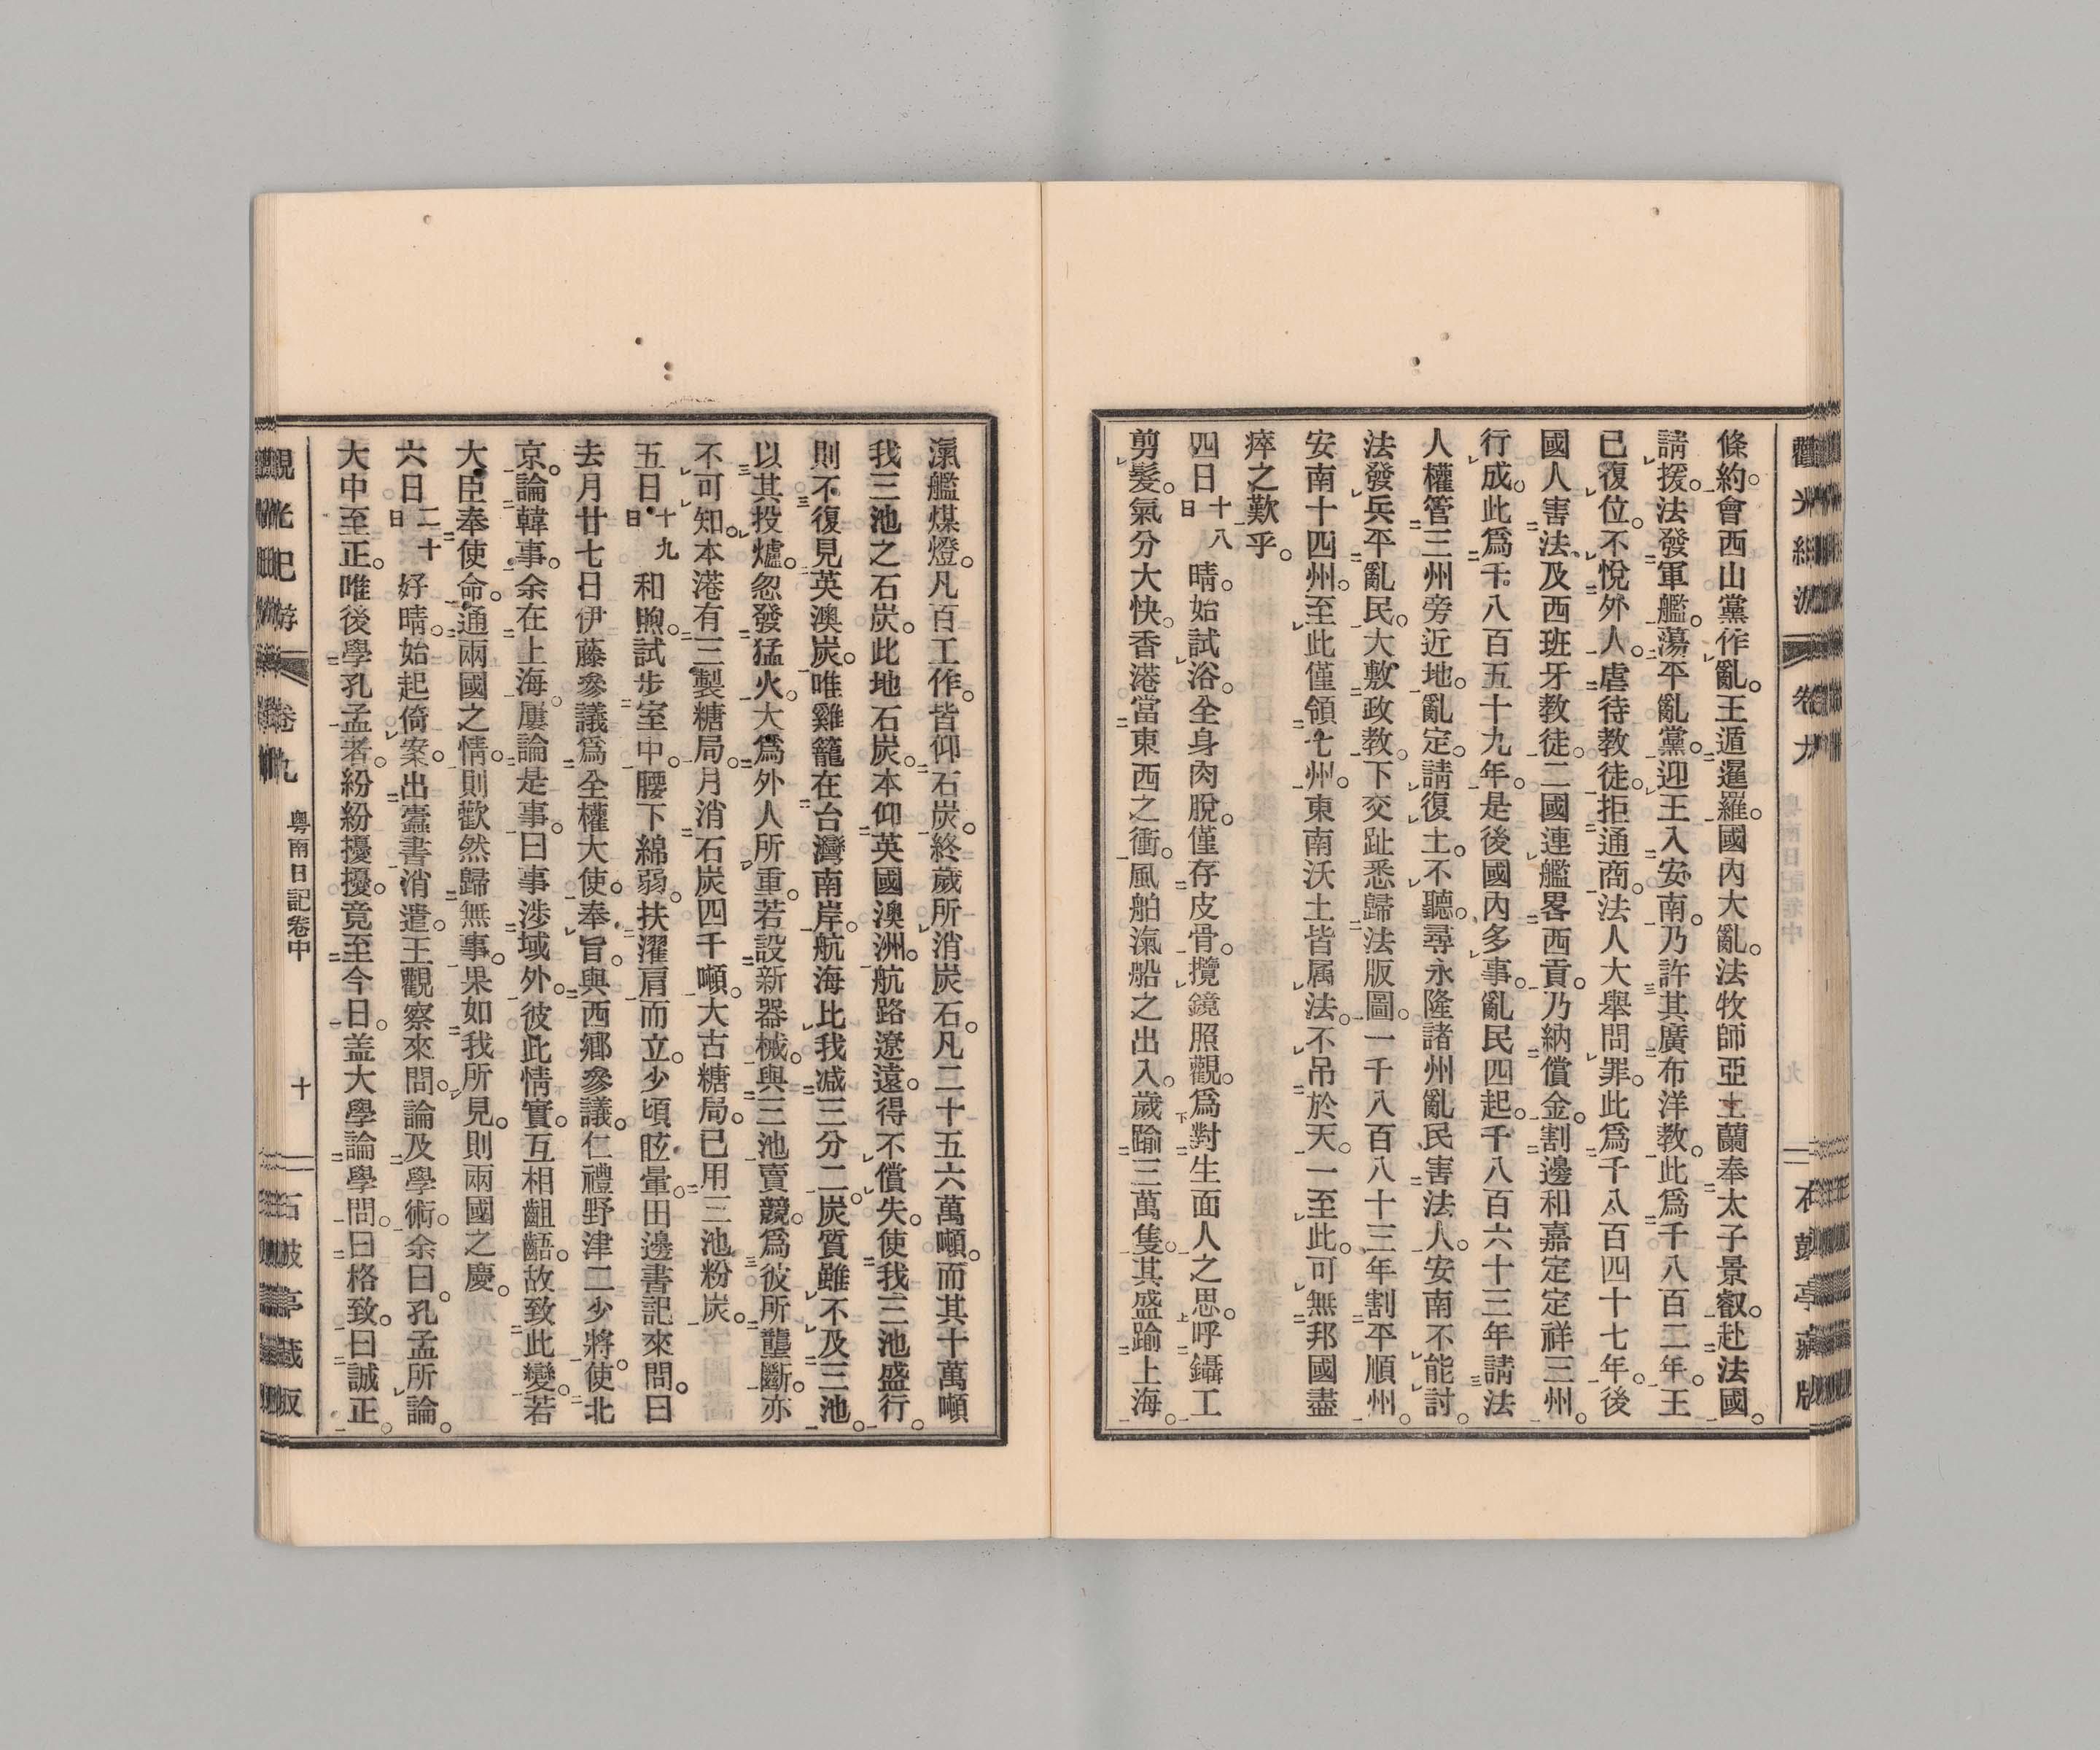 條約。會西山黨作亂。王遁暹羅。國內大亂。法牧師亞土蘭奉太子景叡。赴法國。
請援。法發軍艦。蕩平亂黨。迎王入安南。乃許其廣布洋教。此爲千八百二年。王
已復位。不悅外人。虐待教徒。拒通商。法人大舉問罪。此爲千八百四十七年。後
國人害法、及西班牙教徒。二國連艦畧西貢。乃納償金。割邊和嘉定定祥三州。
行成。此爲千八百五十九年。是後國內多事。亂民四起。千八百六十三年請法
人權管三州旁近地。亂定。請復土。不聽。尋永隆諸州亂民害法人。安南不能討。
法發兵平亂民。大敷政教。下交趾悉歸法版圖。一千八百八十三年割平順州。
安南十四州。至此僅領七州。東南沃土皆属法。不吊於天。一至此。可無邦國盡
瘁之歎乎。
四日十八日晴。始試浴。全身肉脫。僅存皮骨。攬鏡照觀。爲對生面人之思。呼鑷工
剪髮。氣分大快。香港當東西之衝。風舶滊船之出入。歲踰三萬隻。其盛踰上海。
滊艦煤燈。凡百工作。皆仰石炭。終歲所消炭石。凡二十五六萬噸。而其十萬噸
我三池之石炭。此地石炭。本仰英國澳洲。航路遼遠。得不償失。使我三池盛行。
則不復見英澳炭。唯雞籠在台灣南岸。航海比我减三分二。炭質雖不及三池。
以其投爐。忽發猛火。大爲外人所重。若設新器械。與三池賣競。爲彼所壟斷。亦
不可知。本港有三製糖局。月消石炭四千噸。大古糖局。已用三池粉炭。
五日十九日和煦。試步室中。腰下綿弱。扶濯肩而立。少頃眩暈。田邊書記來問。曰
去月廿七日伊藤參議爲全權大使。奉旨。與西鄉參議。仁禮野津二少將。使北
京。論韓事。余在上海。屢論是事。曰事涉域外。彼此情實。互相齟齬。故致此變。若
大臣奉使命。通兩國之情。則歡然歸無事。果如我所見。則兩國之慶。
六日二十日好晴。始起倚案。出蠹書消遣。王觀察來問。論及學術。余曰。孔孟所論。
大中至正。唯後學孔孟者。紛紛擾擾。竟至今日。盖大學論學問。曰格致。曰誠正。
粵南日記卷中
十